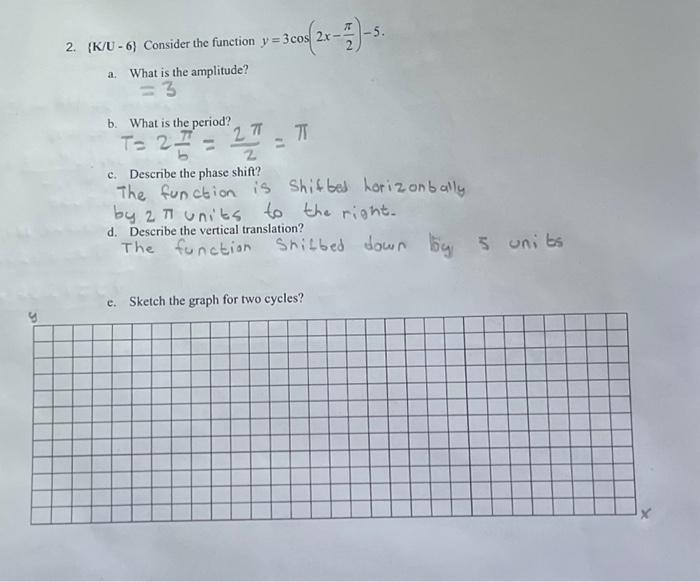 2. {K/U - 6} Consider the function y = 3cos(2x − π/2) − 5.
a. What is the amplitude?
= 3
b. What is the period?
T = 2π/b = 2π/2 = π
c. Describe the phase shift?
The function is shifted horizontally
by 2π units to the right.
d. Describe the vertical translation?
The function shifted down by 5 units
e. Sketch the graph for two cycles?
y
x